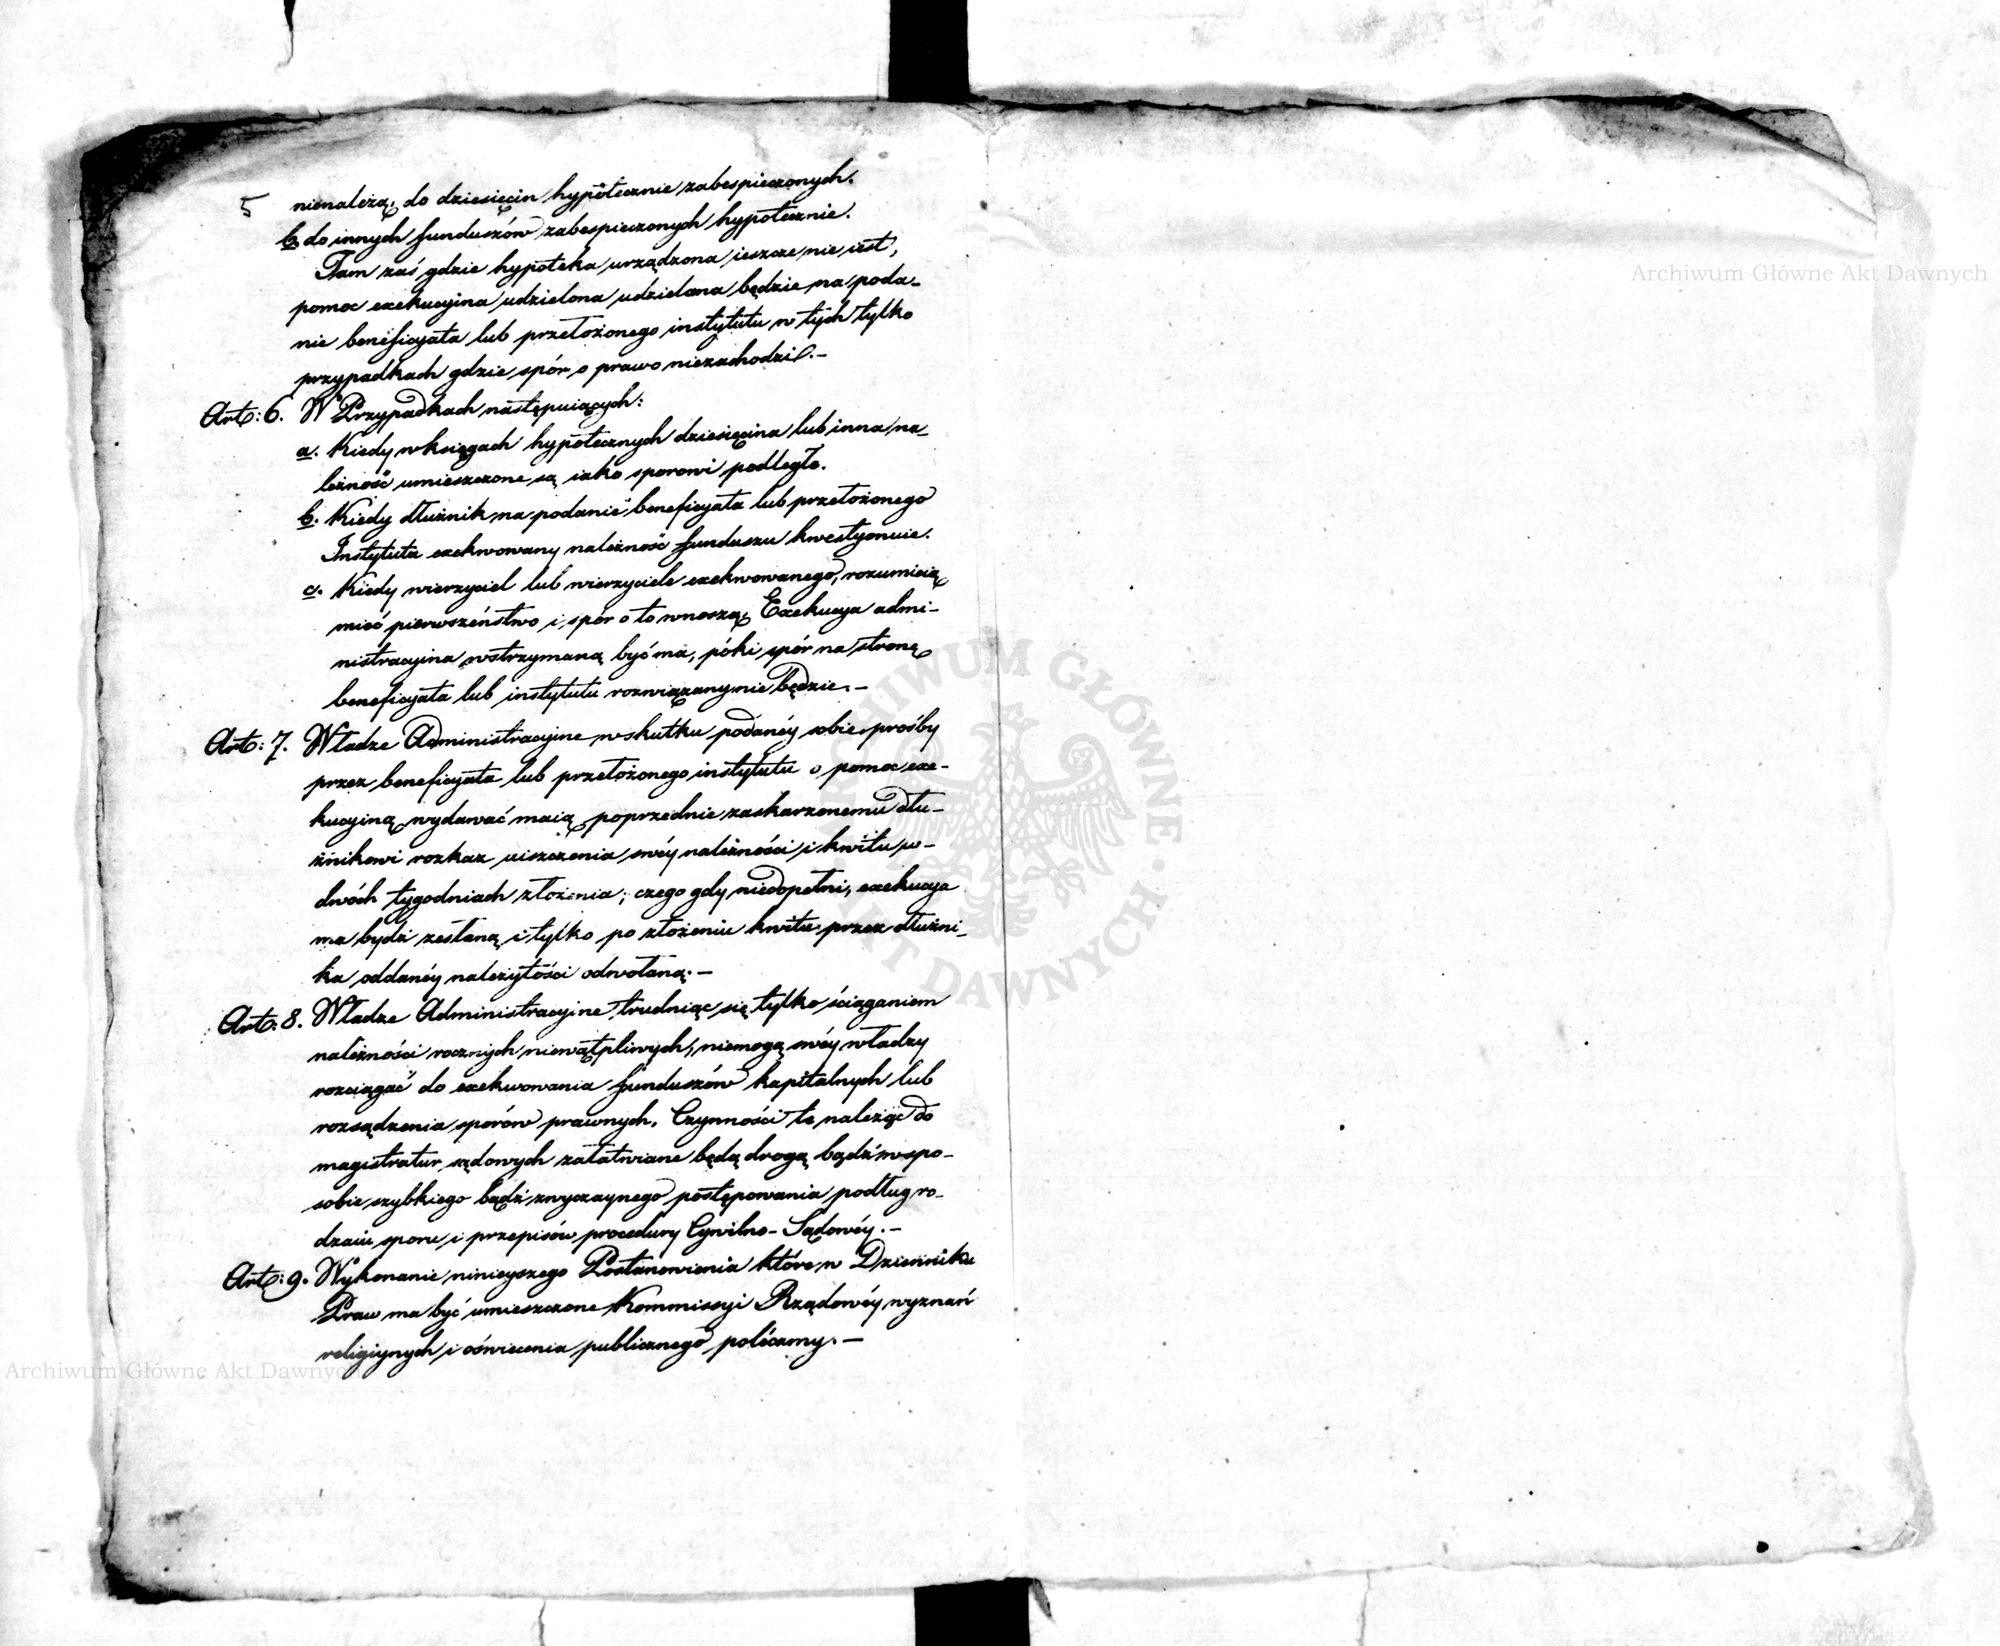 5 nienależą, do dziesięcin hypotecznie zabespieczonych.
b. do innych funduszów zabespieczonych hypotecznie.
Tam zaś gdzie hypoteka urządzona ieszcze nie iest,
pomoc exekucyina udzielona udzielana będzie na poda-
nie beneficyata lub przełożonego instytutu w tych tylko
przypadkach gdzie spór o prawo niezachodzi.-
Art: 6. W Przypadkach następuiących:
a. Kiedy w księgach hypotecznych dziesięcina lub inna na-
leżność umieszczone są iako sporowi podległe.
b. Kiedy dłużnik na podanie beneficyata lub przełożonego
Instytuta exekwowany należność funduszu kwestyonuie.
c. Kiedy wierzyciel lub wierzyciele exekwowanego, rozumieią
mieć pierwszeństwo i spór o to wnoszą, Exekucya admi-
nistracyina wstrzymaną być ma, póki spór na stronę
beneficyata lub instytutu rozwiązany nie będzie.-
Art: 7. Władze Administracyine w skutku podanéy sobie prośby
przez beneficyata lub przełożonego instytutu o pomoc exe-
kucyiną wydawać maią poprzednie zaskarzonemu dłu-
żnikowi rozkaz uiszczenia swéy należności i kwitu w-
dwóch tygodniach złożenia; czego gdy niedopełni, exekucya
ma bydź zesłaną i tylko po złożeniu kwitu przez dłużni-
ka oddanéy należytości odwołaną.-
Art: 8. Władze Administracyine trudniąc się tylko ściąganiem
należności rocznych niewątpliwych, niemogą swéy władzy
rozciągać do exekwowania funduszów kapitalnych lub
rozsądzenia sporów prawnych. Czynności te należąc do
magistratur sądowych załatwiane będą drogą bądź w spo-
sobie szybkiego bądź zwyczaynego postępowania podług ro-
dzaiu sporu i przepisów procedury Cywilno-Sądowéy.-
Art: 9. Wykonanie ninieyszego Postanowienia które w Dzienniku
Praw ma być umieszczone Kommissyi Rządowéy wyznań
religiynych i oświecenia publicznego polécamy.-
Archiwum Główne Akt Dawnych
Archiwum Główne Akt Dawnych
ARCHIWUM GŁÓWNE AKT DAWNYCH